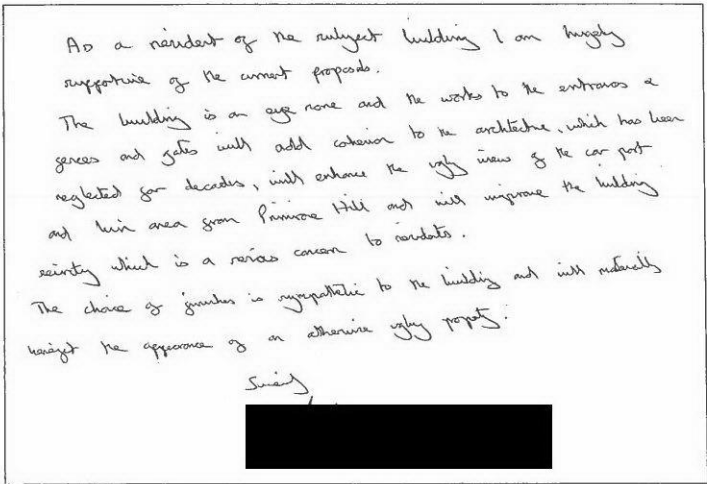 As a resident of the subject building I am hugely
supportive of the current proposals.
The building is an eye sore and the works to the entrances &
fences and gates will add cohesion to the architecture, which has been
neglected for decades, will enhance the ugly views of the car port
and bin area from Primrose Hill and will improve the building
security which is a serious concern to residents.
The choice of finishes is sympathetic to the building and will materially
benefit the appearance of an otherwise ugly property.
Sincerely